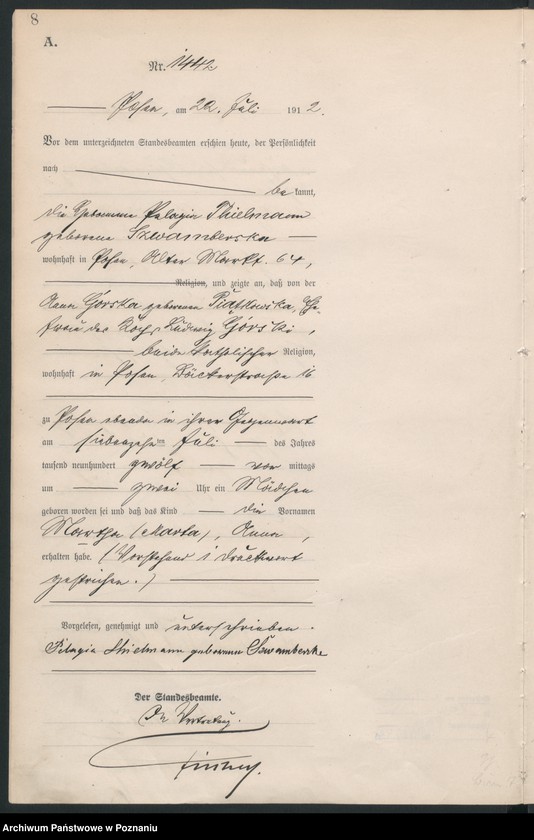 8
A.
Nr. 1442
Posen, am 20. Juli 1912.
Vor dem unterzeichneten Standesbeamten erschien heute, der Persönlichkeit
nach
bekannt,
die Hebamme Pelagia Thielmann
geborene Szwamberska
wohnhaft in Posen, Alter Markt 64,
Religion, und zeigte an, daß von der
Anna Górska geborenen Piątkowska, Ehe-
frau des Kochs Ludwig Górski,
beide katholischer Religion,
wohnhaft in Posen, Bäckerstrasse 16
zu Posen ebenda in ihrer Gegenwart
am siebenzehnten Juli des Jahres
tausend neunhundert zwölf vor mittags
um zwei Uhr ein Mädchen
geboren worden sei und daß das Kind die Vornamen
Martha (Marta), Anna,
erhalten habe. (Vorstehend 1 Druckwort
gestrichen.)
Vorgelesen, genehmigt und unterschrieben.
Pelagia Thielmann geborenen Szwamberska
Der Standesbeamte.
In Vertretung.
Archiwum Państwowe w Poznaniu